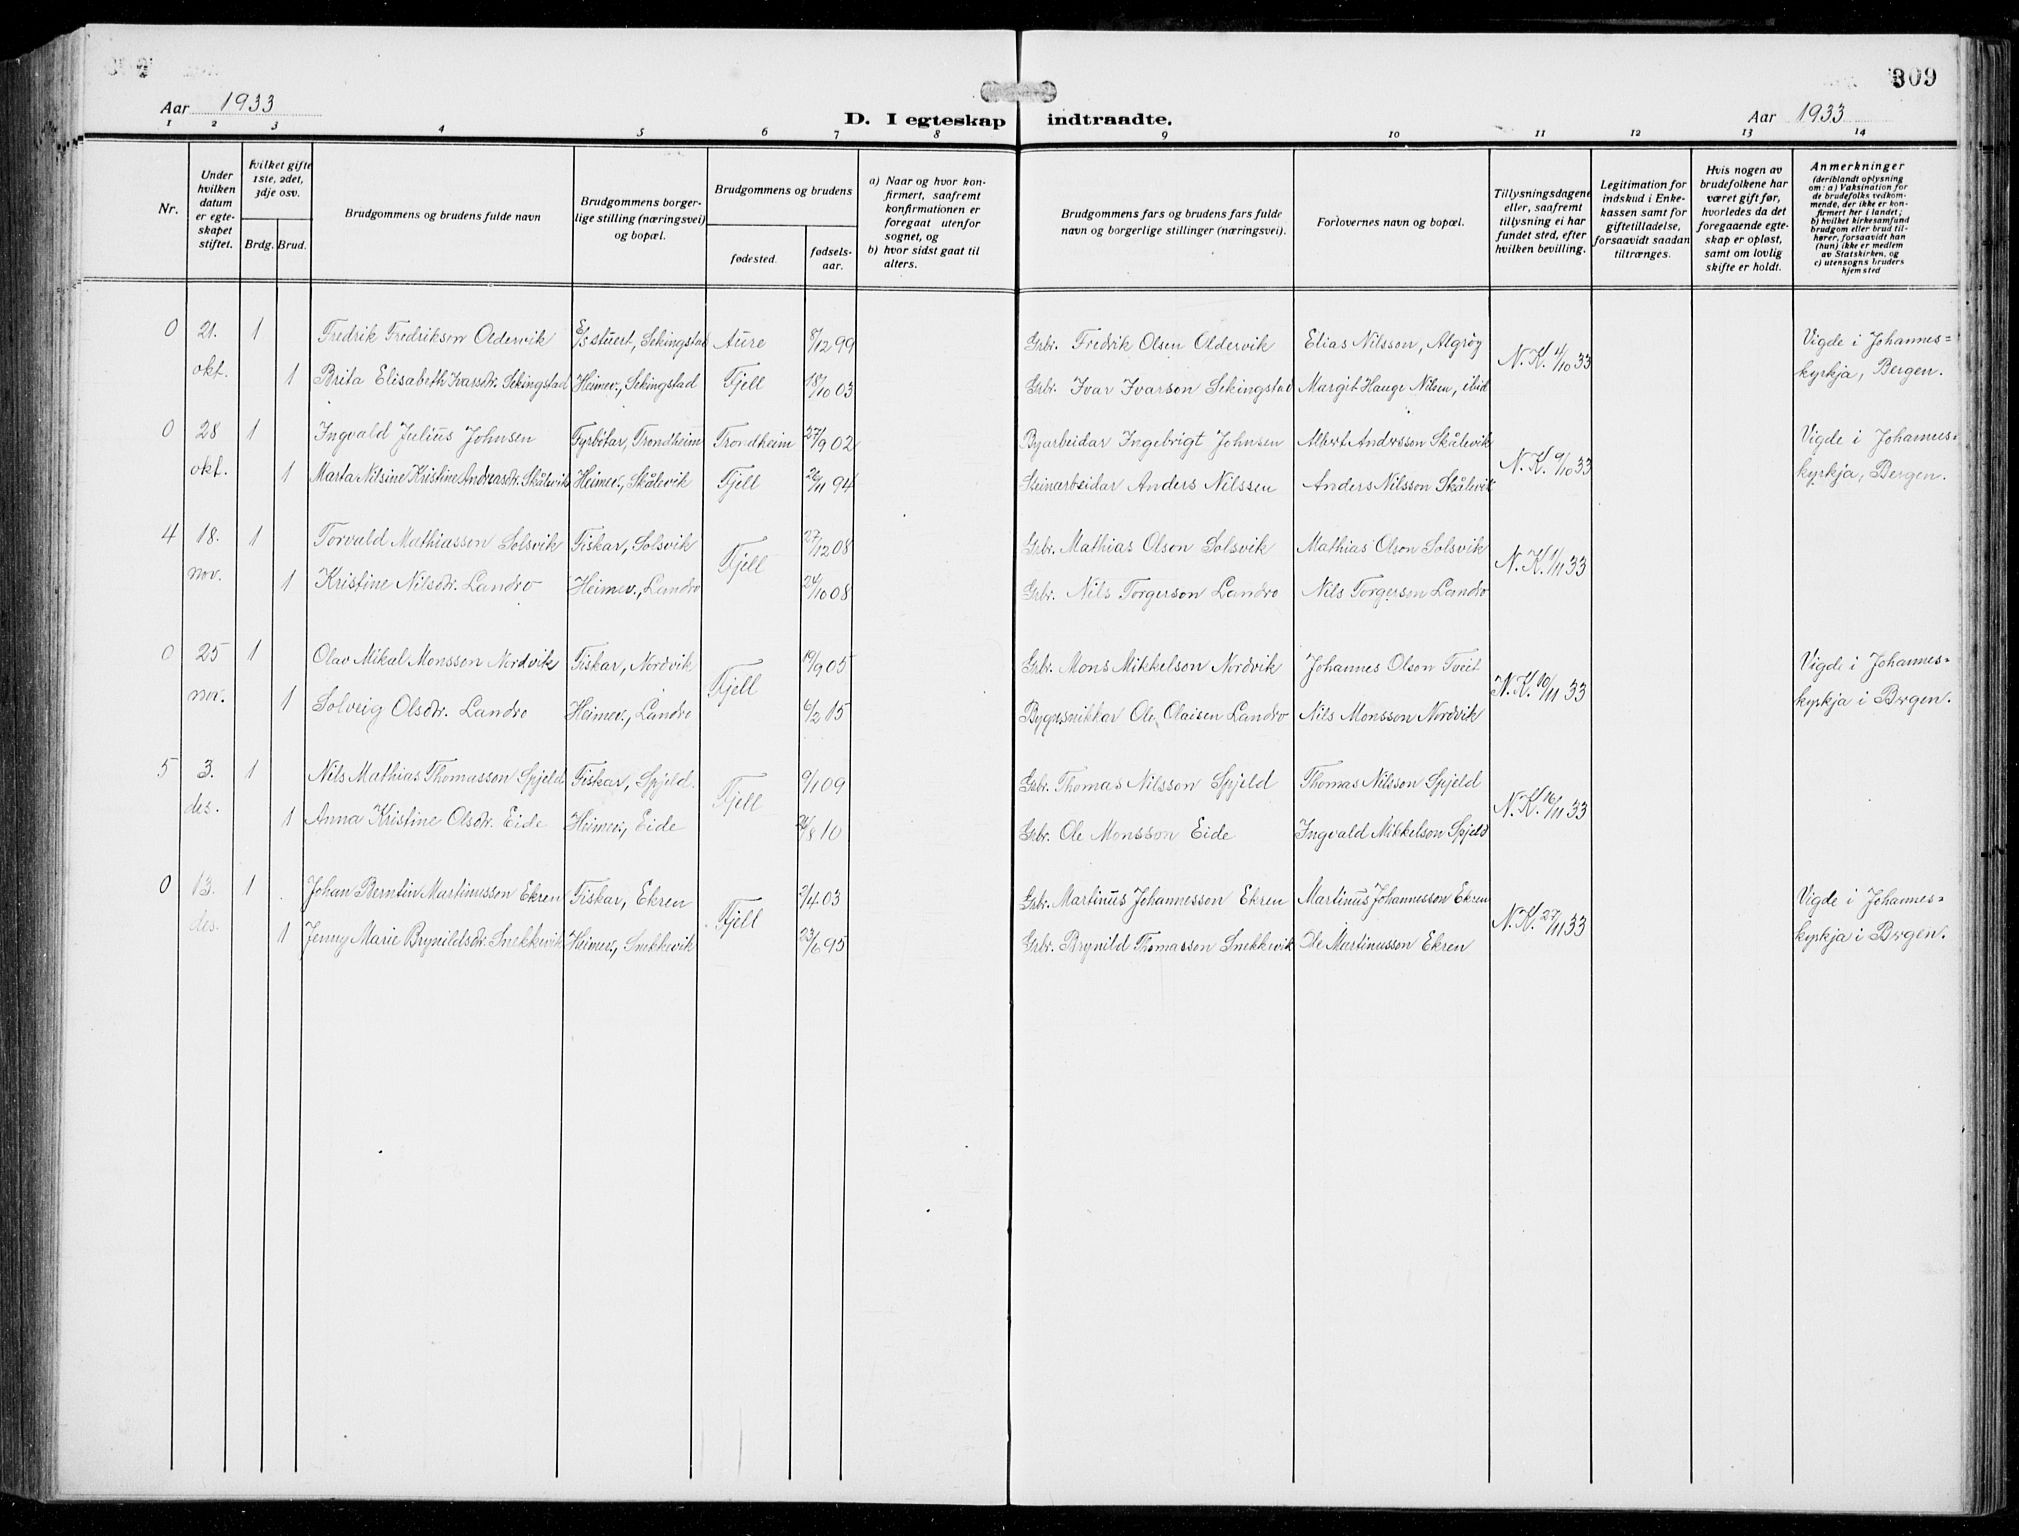 309
Aar 1933
D. I egteskap indtraadte.
Aar 1933
1 2 3 4 5 6 7 8 9 10 11 12 13 14
Nr.
Under hvilken datum er egteskapet stiftet.
Hvilket gifte 1ste, 2det, 3dje osv.
Brdg. Brud.
Brudgommens og brudens fulde navn
Brudgommens borgerlige stilling (næringsvei) og bopæl.
Brudgommens og brudens
fødested.
fødselsaar.
a) Naar og hvor konfirmert, saafremt konfirmationen er foregaat utenfor sognet, og
b) hvor sidst gaat til alters.
Brudgommens fars og brudens fars fulde navn og borgerlige stillinger (næringsvei).
Forlovernes navn og bopæl.
Tillysningsdagene eller, saafremt tillysning ei har fundet sted, efter hvilken bevilling.
Legitimation for indskud i Enkekassen samt for giftetilladelse, forsaavidt saadan tiltrænges.
Hvis nogen av brudefolkene har været gift før, hvorledes da det foregaaende egteskap er opløst, samt om lovlig skifte er holdt.
Anmerkninger
(deriblandt oplysning om: a) Vaksination for de brudefolks vedkommende, der ikke er konfirmert her i landet; b) hvilket kirkesamfund brudgom eller brud tilhører, forsaavidt han (hun) ikke er medlem av Statskirken, og c) utensogns bruders hjemsted
0 21. 1 Fredrik Fredriksen Oldervik E/s stuert, Sekingstad Aure 8/12 99 Grbr. Fredrik Olsen Oldervik Elias Nilsson, Algrøy N. K. 4/10 33 Vigde i Johannes=
okt. 1 Brita Elisabeth Ivarsdr. Sekingstad Heimev., Sekingstad Fjell 18/10 03 Grbr. Ivar Ivarson Sekingstad Margit Hauge Nilsen, ibid kyrkja, Bergen.
0 28 1 Ingvald Julius Johnsen Fyrbøtar, Trondheim Trondheim 27/9 02 Byarbeidar Ingebrigt Johnsen Albert Andersson Skålevik N. K. 9/10 33 Vigde i Johannes=
okt. 1 Marta Nilsine Kristine Andreasdr. Skålevik Heimev., Skålevik Fjell 26/11 94 Steinarbeidar Anders Nilssen Anders Nilsson Skålevik kyrkja, Bergen.
4 18. 1 Torvald Mathiassen Solsvik Fiskar, Solsvik Fjell 27/12 08 Grbr. Mathias Olson Solsvik Mathias Olson Solsvik N. K. 1/11 33
nov. 1 Kristine Nilsdr. Landro Heimev., Landro 24/10 08 Grbr. Nils Torgerson Landro Nils Torgerson Landro
0 25 1 Olav Mikal Monsson Nordvik Fiskar, Nordvik Fjell 19/9 05 Grbr. Mons Mikkelson Nordvik Johannes Olson Tveit N. K. 10/11 33 Vigde i Johannes=
nov. 1 Solveig Olsdr. Landro Heimev., Landro 6/2 15 Bygdesnikkar Ole Olaisen Landro Nils Monsson Nordvik kyrkja i Brgen.
5 3. 1 Nils Mathias Thomasson Spjeld Fiskar, Spjeld. Fjell 9/1 09 Grbr. Thomas Nilsson Spjeld Thomas Nilsson Spjeld N. K. 16/11 33
des. 1 Anna Kristine Olsdr. Eide Heimev., Eide /8 10 Grbr. Ole Monsson Eide Ingvald Mikkelson Spjeld
0 13. 1 Johan Berntin Martinusson Ekren Fiskar, Ekren Fjell 2/4 03 Grbr. Martinus Johannesson Ekren Martinus Johannesson Ekren N. K. 27/11 33 Vigde i Johannes=
des. 1 Jenny Marie Brynildsdr. Snekkevik Heimev., Snekkevik 23/6 95 Grbr. Brynild Thomassen Snekkevik Ole Martinusson Ekren kyrkja i Brgen.